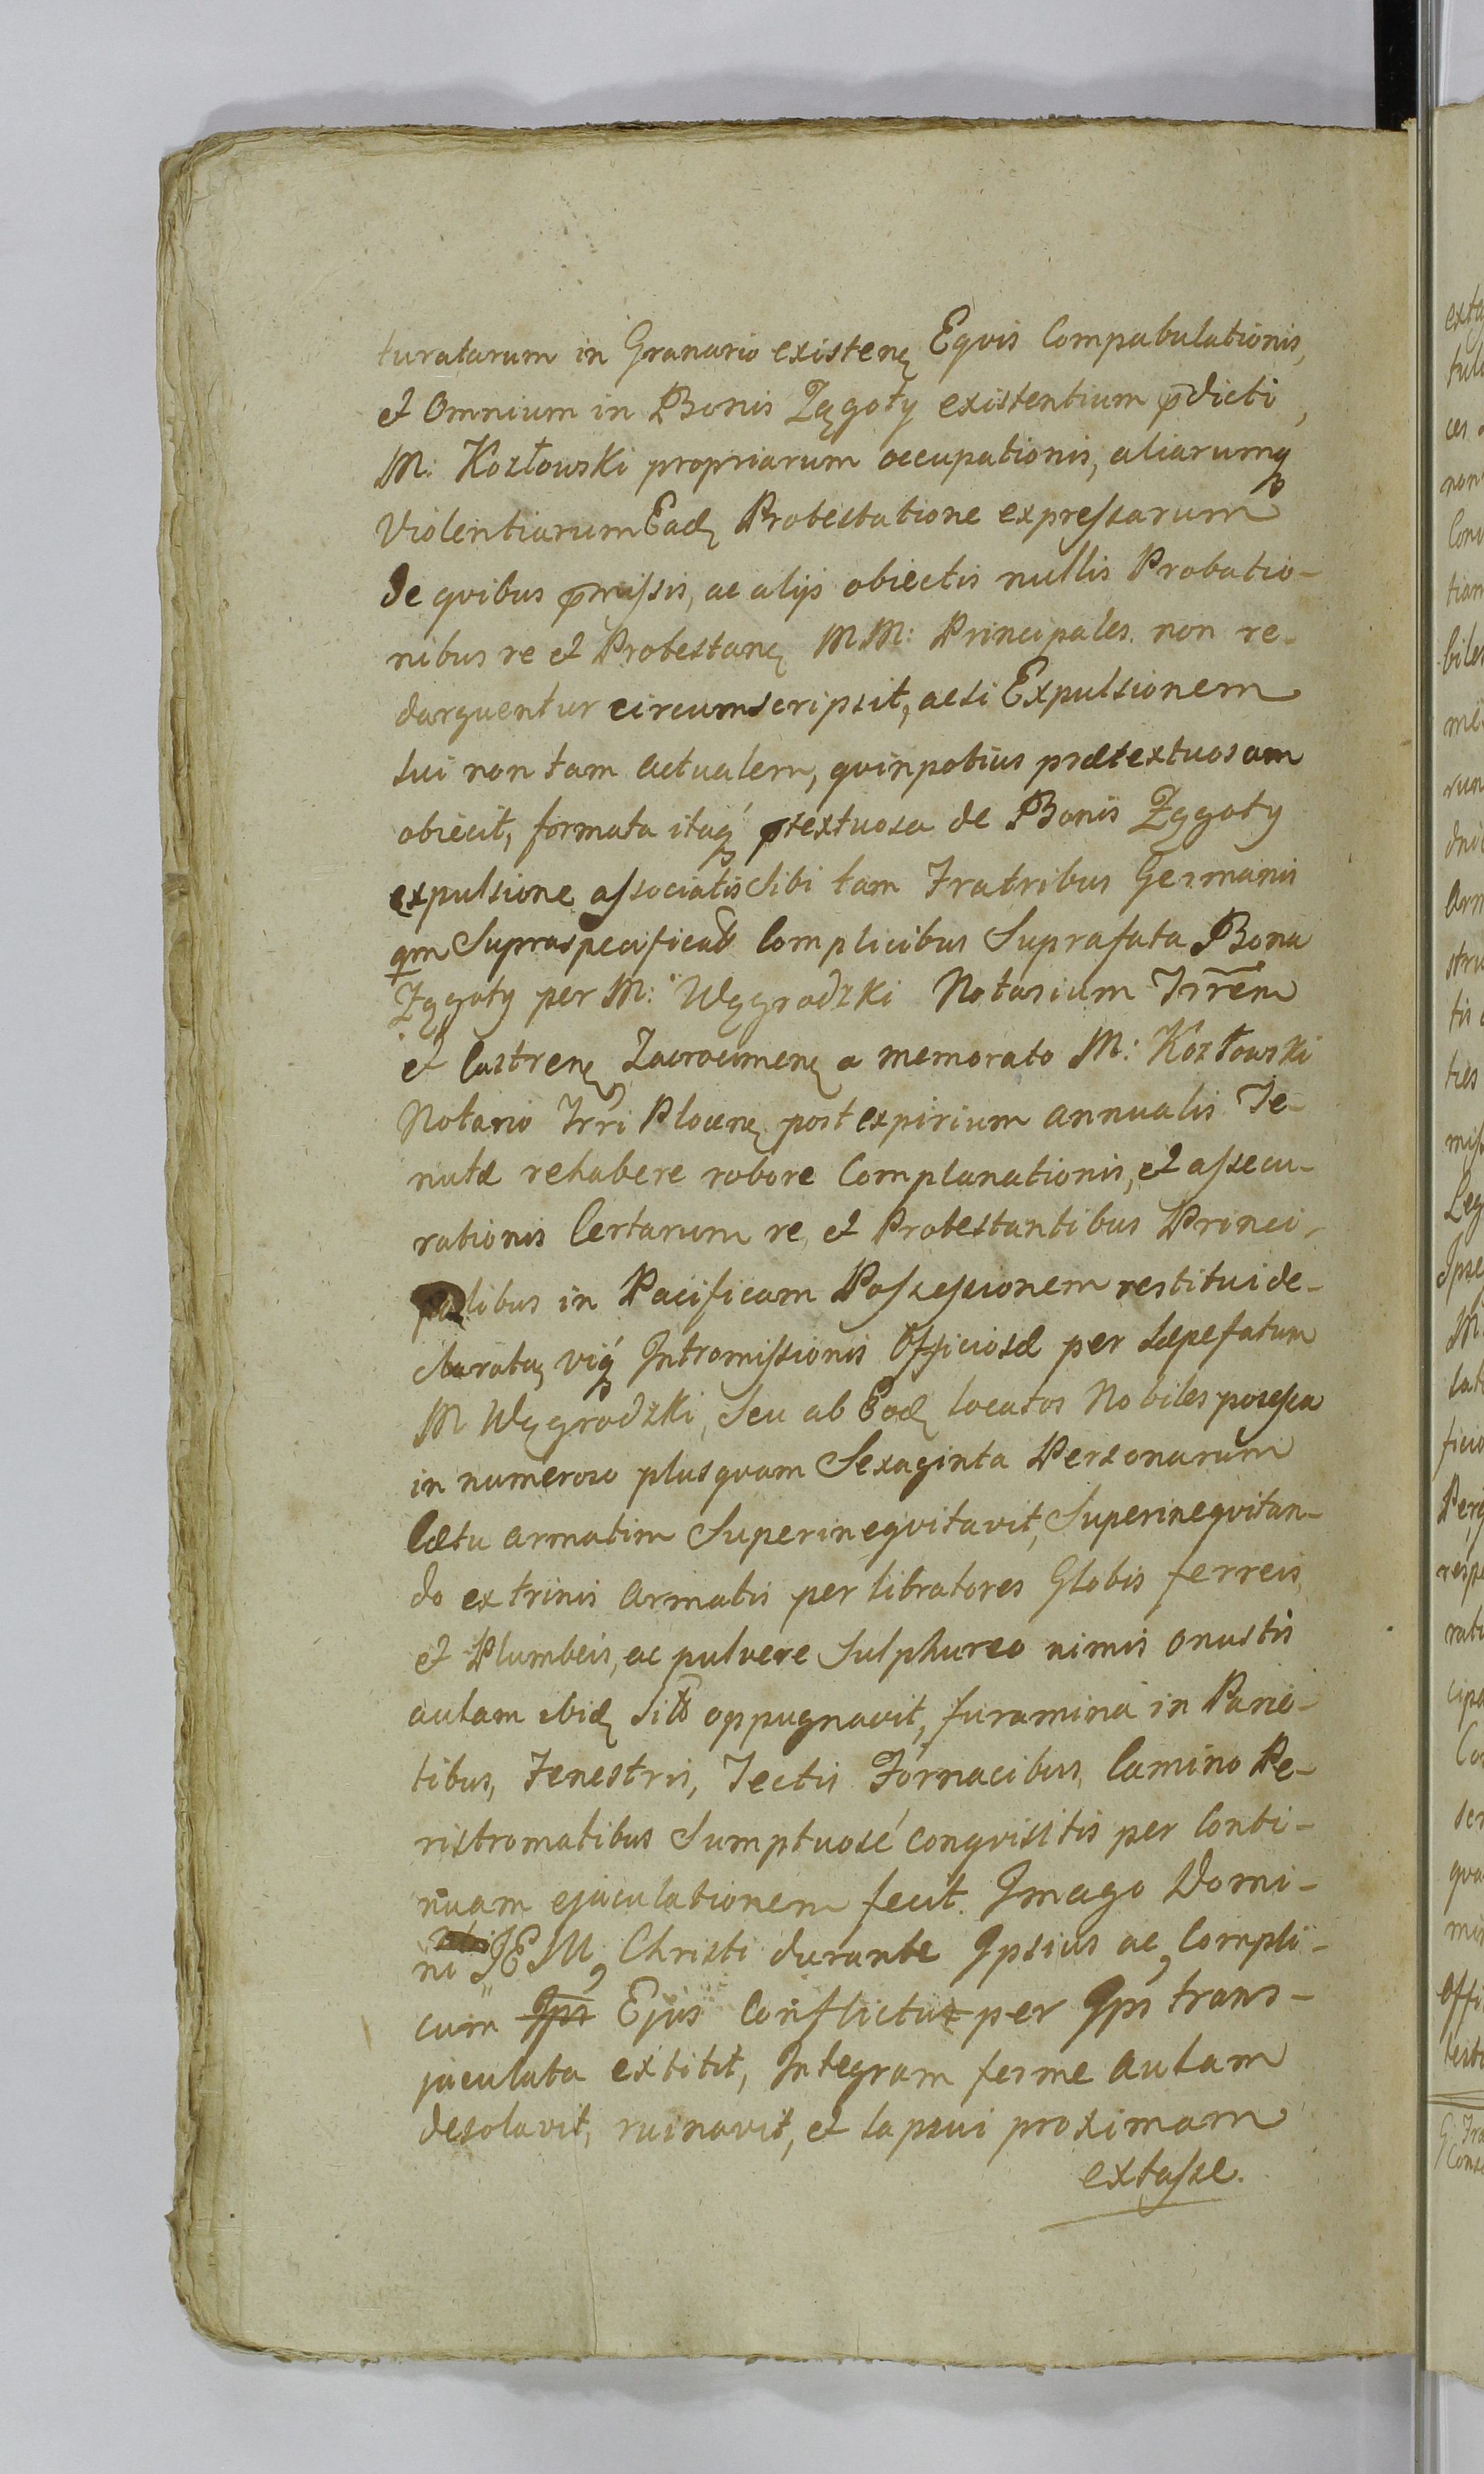 turatarum in Granario existenę Eqvis Compabulationis,
et Omnium in Bonis Zągoty existentium p̄dicti,
M: Kozłowski propriarum occupationis, aliarumq
Violentiarum Eadę Protestatione expreſsarum
De qvibus p̄miſsis, ac alijs obiectis nullis Probatio-
nibus re et Protestanę MM: Principales non re-
darguentur circumscripsit, acsi Expulsionem
sui non tam actualem, qvinpotius prætextuosam
obiecit, formata itaq́ p̄textuosa de Bonis Zągoty
expulsione aſsociatis Sibi tam Fratribus Germanis
qm Supraspecificatis Complicibus Suprafata Bona
Zągoty per M: Węgrodzki Notarium Trr̄em
et Castrenę Zacrocimenę a memorato M: Kozłowski
Notario Trr̄i Plocenę post expirium annualis Te-
nutæ rehabere robore Complanationis, et aſsecu-
rationis Certarum re, et Protestantibus Princi-
palibus in Pacificam Poſseſsionem restitui de-
claratą, viq́ Intromiſsionis Officiosæ per Sæpefatum
M Węgrodzki, Seu ab Eodę locatos Nobiles poſseſsa
in numeroso plusqvam Sexaginta Personarum
Cætu armatim Superineqvitavit, Superineqvitan-
do ex trinis Armatis per libratores Globis ferreis,
et Plumbeis, ac pulvere Sulphureo nimis onustis
aulam ibidę sitis oppugnavit, furamina in Parie-
tibus, Fenestris, Tectis Fornacibus, Camino Pe-
ristromatibus Sumptuosé conqvisitis per Conti-
nuam ejaculationem fecit. Imago Domi-
ni JESU, Christi durante Ipsius ac, Compli-
cum Ips Ejus Conflictu per Ips trans-
jaculata extitit, Integram ferme aulam
desolavit, ruinavit, et lapsui proximam
extaſse.